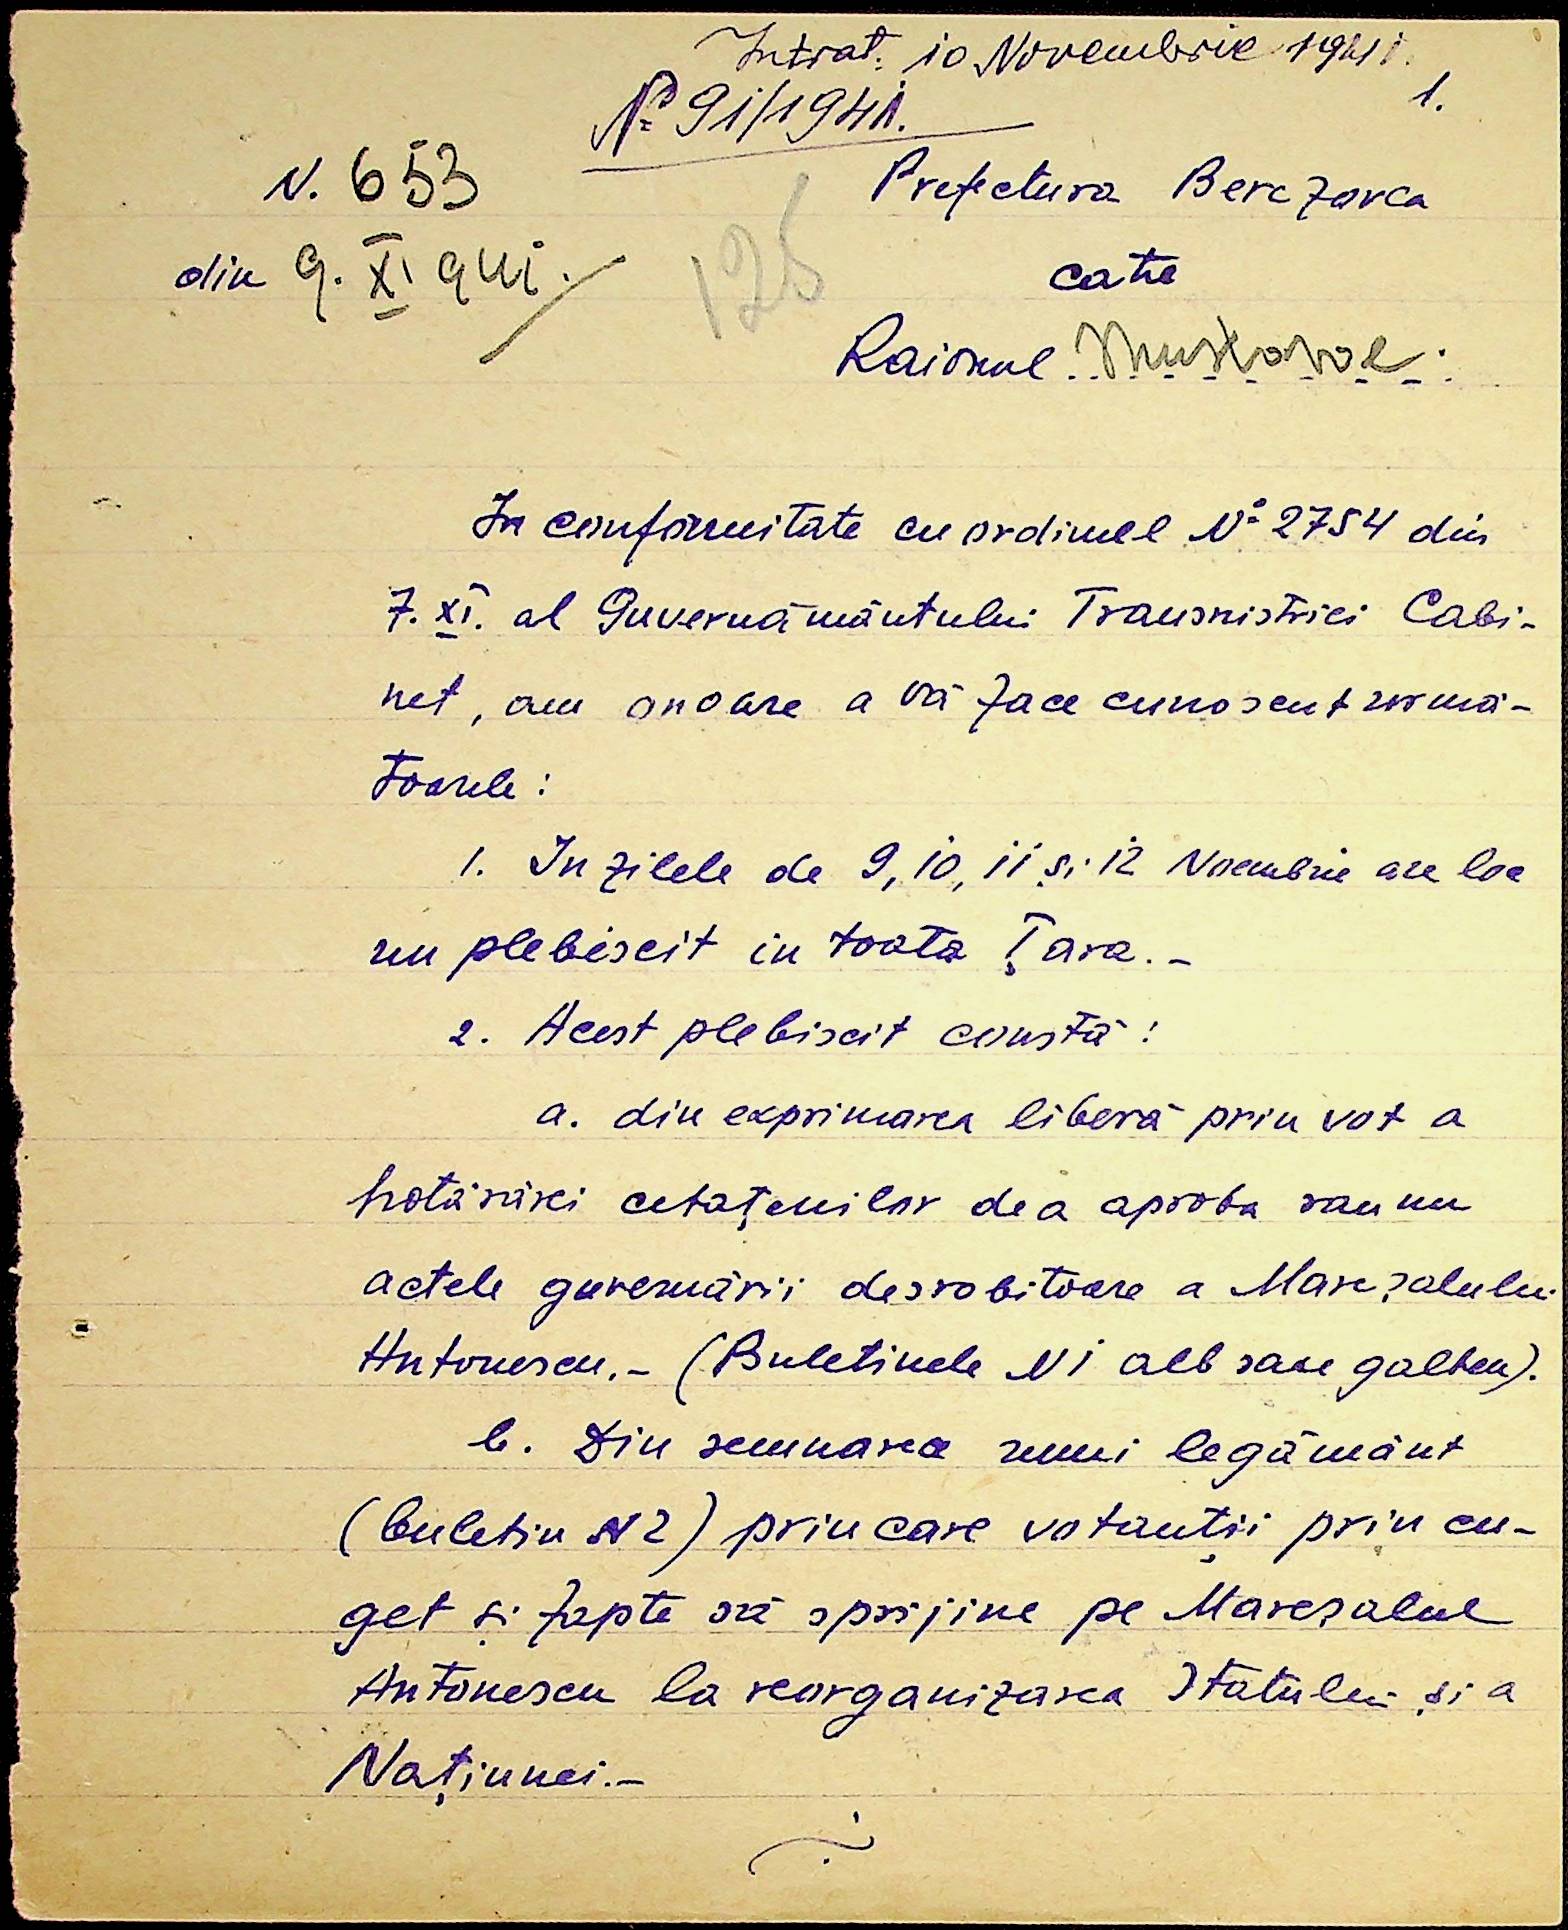 Intrat: 10 Novembrie 1941.
1.
Nº 91/1941.
N. 653
Prefectura Berezovca
din 9. XI 941.
125
catre
Raionul Mostovoe
In conformitate cu ordinul Nº 2754 din
7. XI. al Guvernământului Transnistriei Cabi-
net, am onoare a vă face cunoscut urmă-
toarele:
1. In zilele de 9, 10, 11 și 12 Noembrie are loc
un plebiscit in toata Țara.-
2. Acest plebiscit constă:
a. din exprimarea liberă prin vot a
hotărârei cetațenilor de a aproba sau nu
actele guvernării desrobitoare a Mareșalului
Antonescu.- (Buletinele N 1 alb sau galben).
b. Din semnarea unui legământ
(buletin N 2) prin care votanții prin cu-
get și fapte să sprijine pe Mareșalul
Antonescu la reorganizarea Statului și a
Națiunei.-